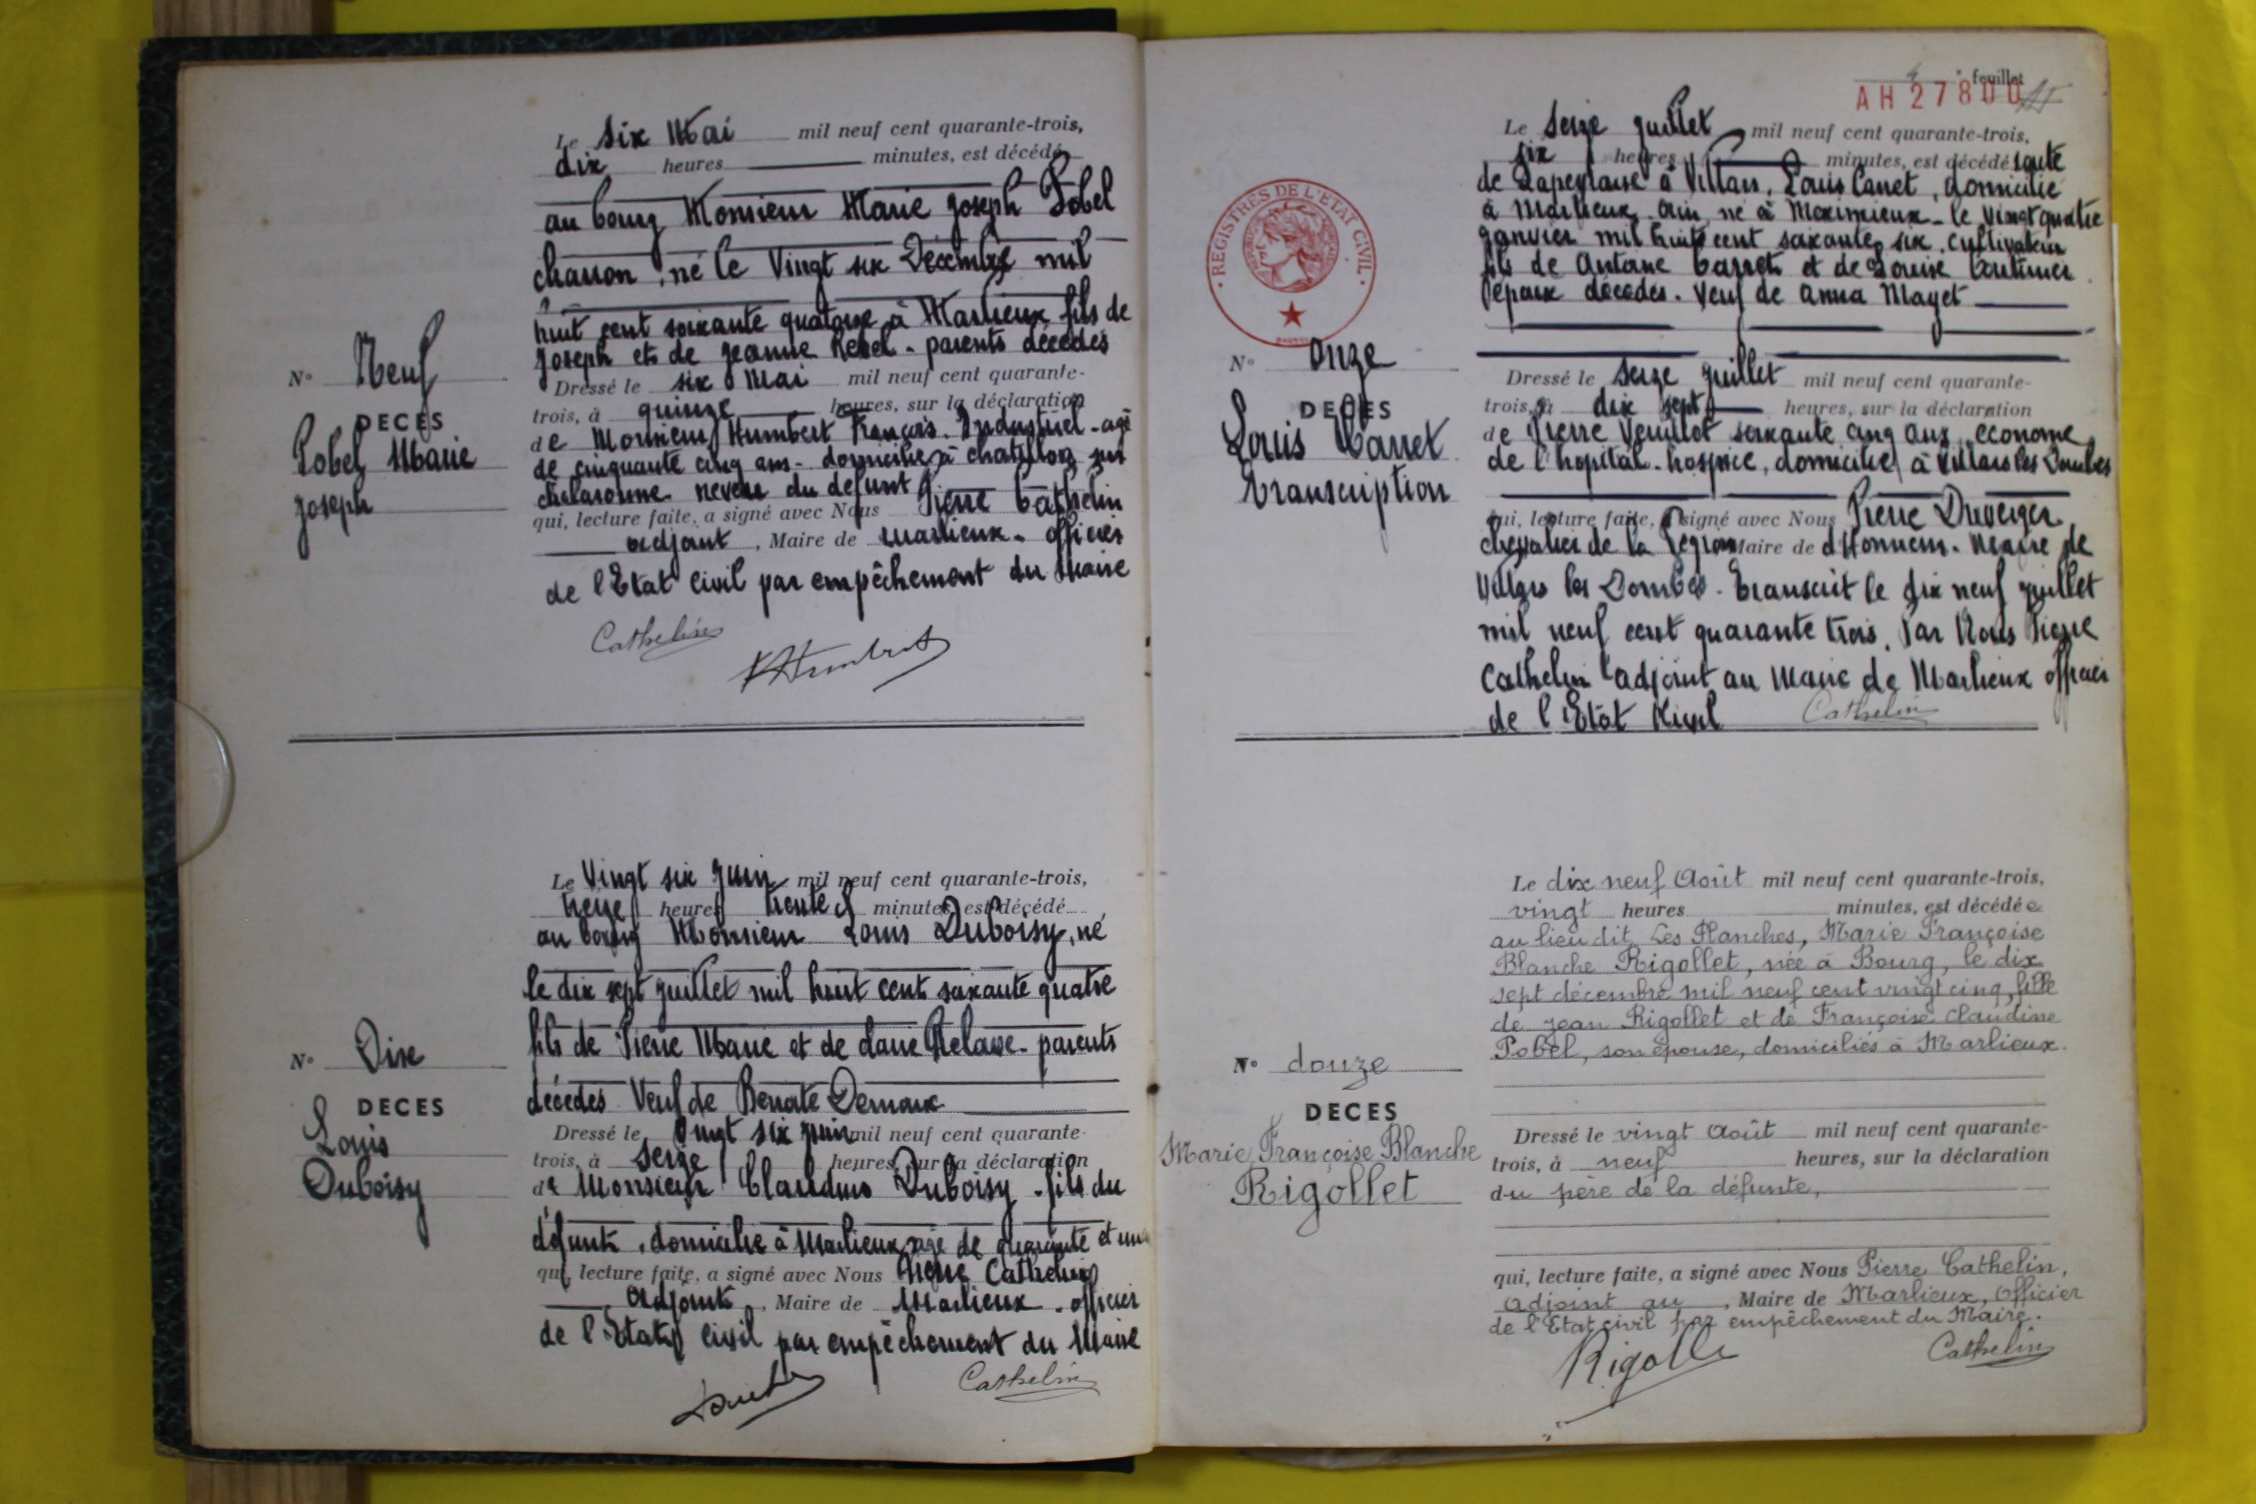 Le six Mai mil neuf cent quarante-trois,
dix heures minutes, est décédé
au bourg Monsieur Marie Joseph Pobel
charron, né le Vingt six Décembre mil
huit cent soixante quatorze à Marlieux fils de
Joseph et de Jeanne Rebel - parents décédés
N° Neuf
DECES
Pobel Marie
Joseph
Dressé le six Mai mil neuf cent quarante-
trois, à quinze heures, sur la déclaration
de Monsieur Humbert François - Industriel - agé
de cinquante cinq ans - domicilié à Chatillon sur
Chalaronne neveu du defunt
qui, lecture faite, a signé avec Nous Pierre Cathelin
adjoint, Maire de Marlieux - officier
de l'Etat civil par empêchement du Maire
Cathelin
Humbert
Le Vingt six Juin mil neuf cent quarante-trois,
treize heures trente minutes, est décédé
au bourg Monsieur Louis Duboisy, né
le dix sept Juillet mil huit cent soixante quatre
fils de Pierre Marie et de parents
décédés Veuf de
N° Dix
DECES
Louis
Duboisy
Dressé le Vingt six Juin mil neuf cent quarante-
trois, à seize heures, sur la déclaration
de Monsieur Claudius Duboisy - fils du
défunt, domicilié à Marlieux agé de quarante et un
qui, lecture faite, a signé avec Nous Pierre Cathelin
adjoint, Maire de Marlieux - officier
de l'Etat civil par empêchement du Maire
Cathelin
4 e feuillet
AH 27800
REGISTRES DE L'ETAT CIVIL
Le seize Juillet mil neuf cent quarante-trois,
six heures minutes, est décédé route
de Lapeyrouse à Villars, Louis Carret, domicilié
à Marlieux Ain, né à Meximieux - le vingt quatre
Janvier mil huit cent soixante six. cultivateur
fils de Antoine Carret et de Louise
décédés. Veuf de Anna Mayet
N° Onze
DECES
Louis Carret
Transcription
Dressé le seize Juillet mil neuf cent quarante-
trois, à dix sept heures, sur la déclaration
de Pierre Veuillot soixante cinq ans, économe
de l'hopital-hospice, domicilié à Villars les Dombes
qui, lecture faite, a signé avec Nous Pierre Duverger
chevalier de la Légion Maire de d'Honneur. Maire de
Villars les Dombes - Transcrit le dix neuf Juillet
mil neuf cent quarante trois, Par Nous Pierre
Cathelin adjoint au Maire de Marlieux officier
de l'Etat Civil Cathelin
Le dix neuf Août mil neuf cent quarante-trois,
vingt heures minutes, est décédée
au lieu dit Les Planches, Marie Françoise
Blanche Rigollet, née à Bourg, le dix
sept décembre mil neuf cent vingt cinq, fille
de Jean Rigollet et de Françoise Claudine
Pobel, son épouse, domiciliés à Marlieux.
N° douze
DECES
Marie Françoise Blanche
Rigollet
Dressé le vingt Août mil neuf cent quarante-
trois, à neuf heures, sur la déclaration
du père de la défunte,
qui, lecture faite, a signé avec Nous Pierre Cathelin,
Adjoint au, Maire de Marlieux, Officier
de l'Etat civil par empêchement du Maire.
Rigollet
Cathelin